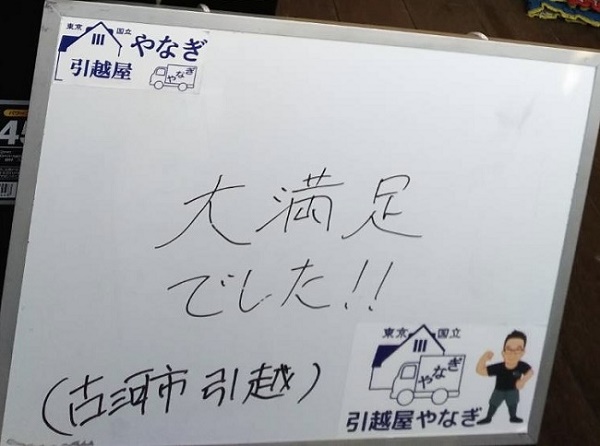 東京 国立 やなぎ
引越屋 やなぎ
大満足
でした!!
(古河市 引越)
東京 国立
やなぎ
引越屋やなぎ
45